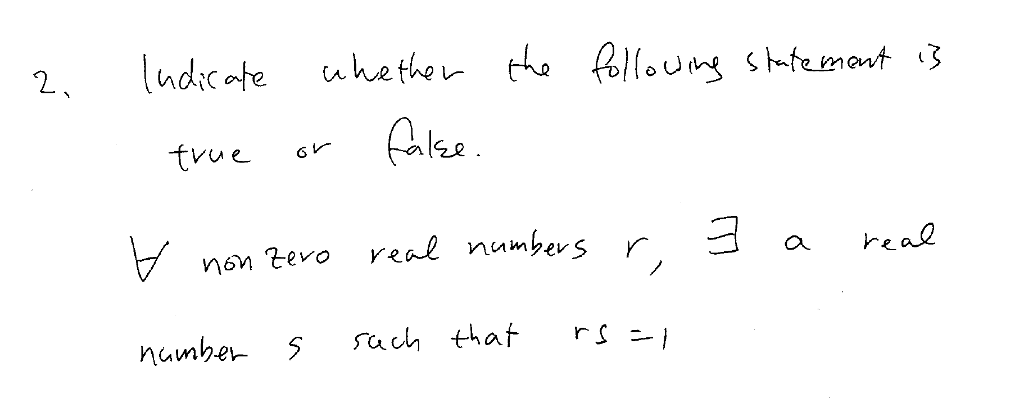 2. Indicate whether the following statement is
true or false.
∀ nonzero real numbers r, ∃ a real
number s such that rs = 1